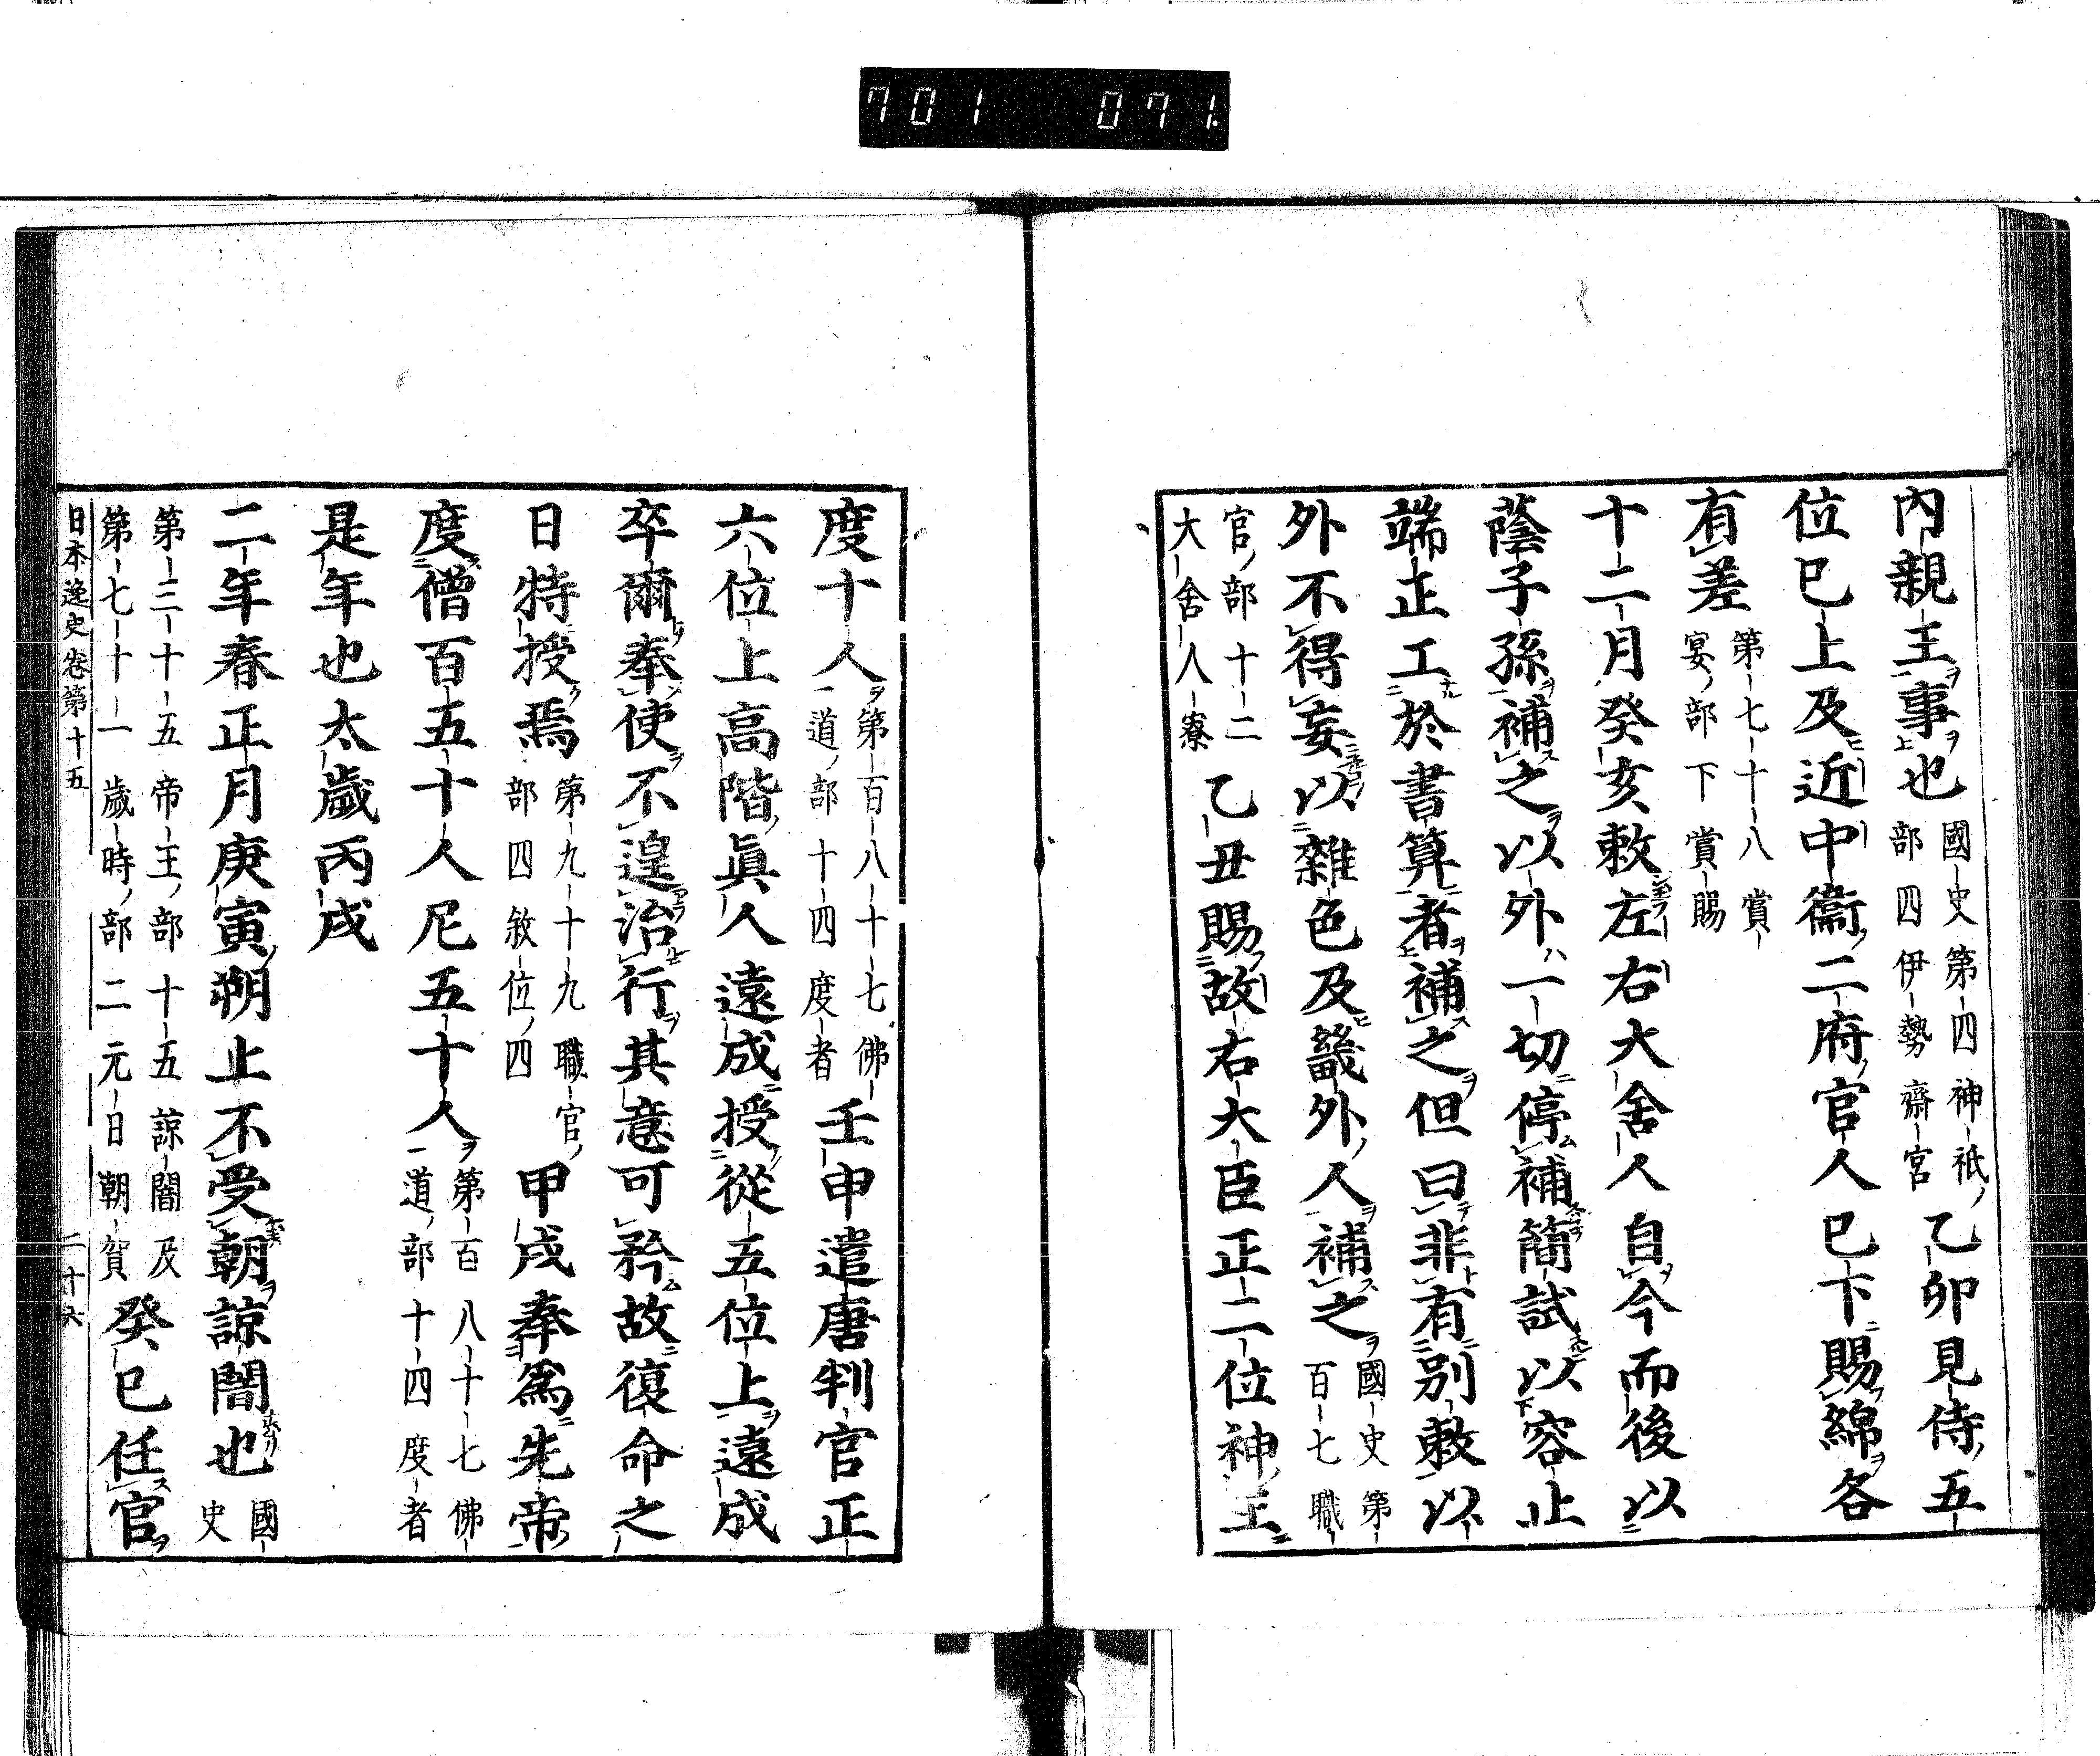 701 071
內親王事也國史第四神祇部四伊勢齋宮乙卯見侍五
位已上及近中衞二府官人已下賜綿各
有差第七十八賞宴部下賞賜
十二月癸亥敕左右大舍人自今而後以
蔭子孫補之以外一切停補簡試以容止
端正工於書算者補之但曰非有別敕以
外不得妄以雜色及畿外人補之國史第百七職
官部十二大舍人寮乙丑賜故右大臣正二位神王
度十人第百八十七佛道部十四度者壬申遣唐判官正
六位上高階眞人遠成授從五位上遠成
卒爾奉使不遑治行其意可矜故復命之
日特授焉第九十九職官部四敘位四甲戌奉爲先帝
度僧百五十人尼五十人第百八十七佛道部十四度者
是年也太歲丙戌
二年春正月庚寅朔止不受朝諒闇也國史
第三十五帝王部十五諒闇及第七十一歲時部二元日朝賀癸巳任官
日本逸史卷第十五 二十六